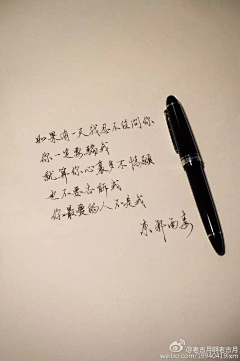 如果有一天我忍不住问你
你一定要骗我
就算你心里多不情愿
也不要告诉我
你最爱的人不是我
@老古月啊老古月
weibo.com/19940419lxm